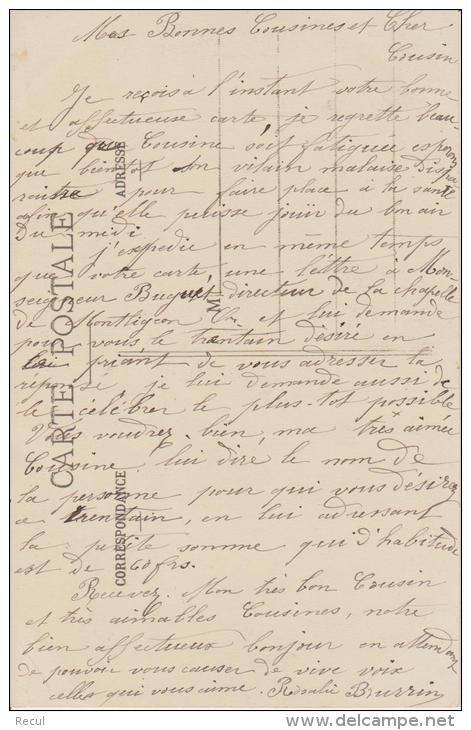 Mes Bonnes Cousines et Cher
Cousin
Je reçois à l'instant votre bonne
et affectueuse carte, je regrette beau-
coup que Cousine soit fatiguée espérons
que bientôt son vilain malaise dispa-
raîtra pour faire place à la santé
afin qu'elle puisse jouir du bon air
Du midi
j'expédie en même temps
que votre carte une lettre à Mon-
seigneur Buguet directeur de la chapelle
de Montligeon et lui demande
pour vous le trentain désiré en
lui priant de vous adresser la
réponse, je lui demande aussi de
le célébrer le plus-tôt possible
Vous voudrez bien, ma très aimée
Cousine lui dire le nom de
la personne pour qui vous désirez
ce trentain, en lui adressant
la petite somme qui d'habitude
est de 60 frs.
Recevez Mon très bon Cousin
et très aimables Cousines, notre
bien affectueux bonjour en attendant
de pouvoir vous causer de vive voix
celle qui vous aime. Rosalie
CARTE POSTALE
CORRESPONDANCE
ADRESSE
M
Recul
www.delcampe.net